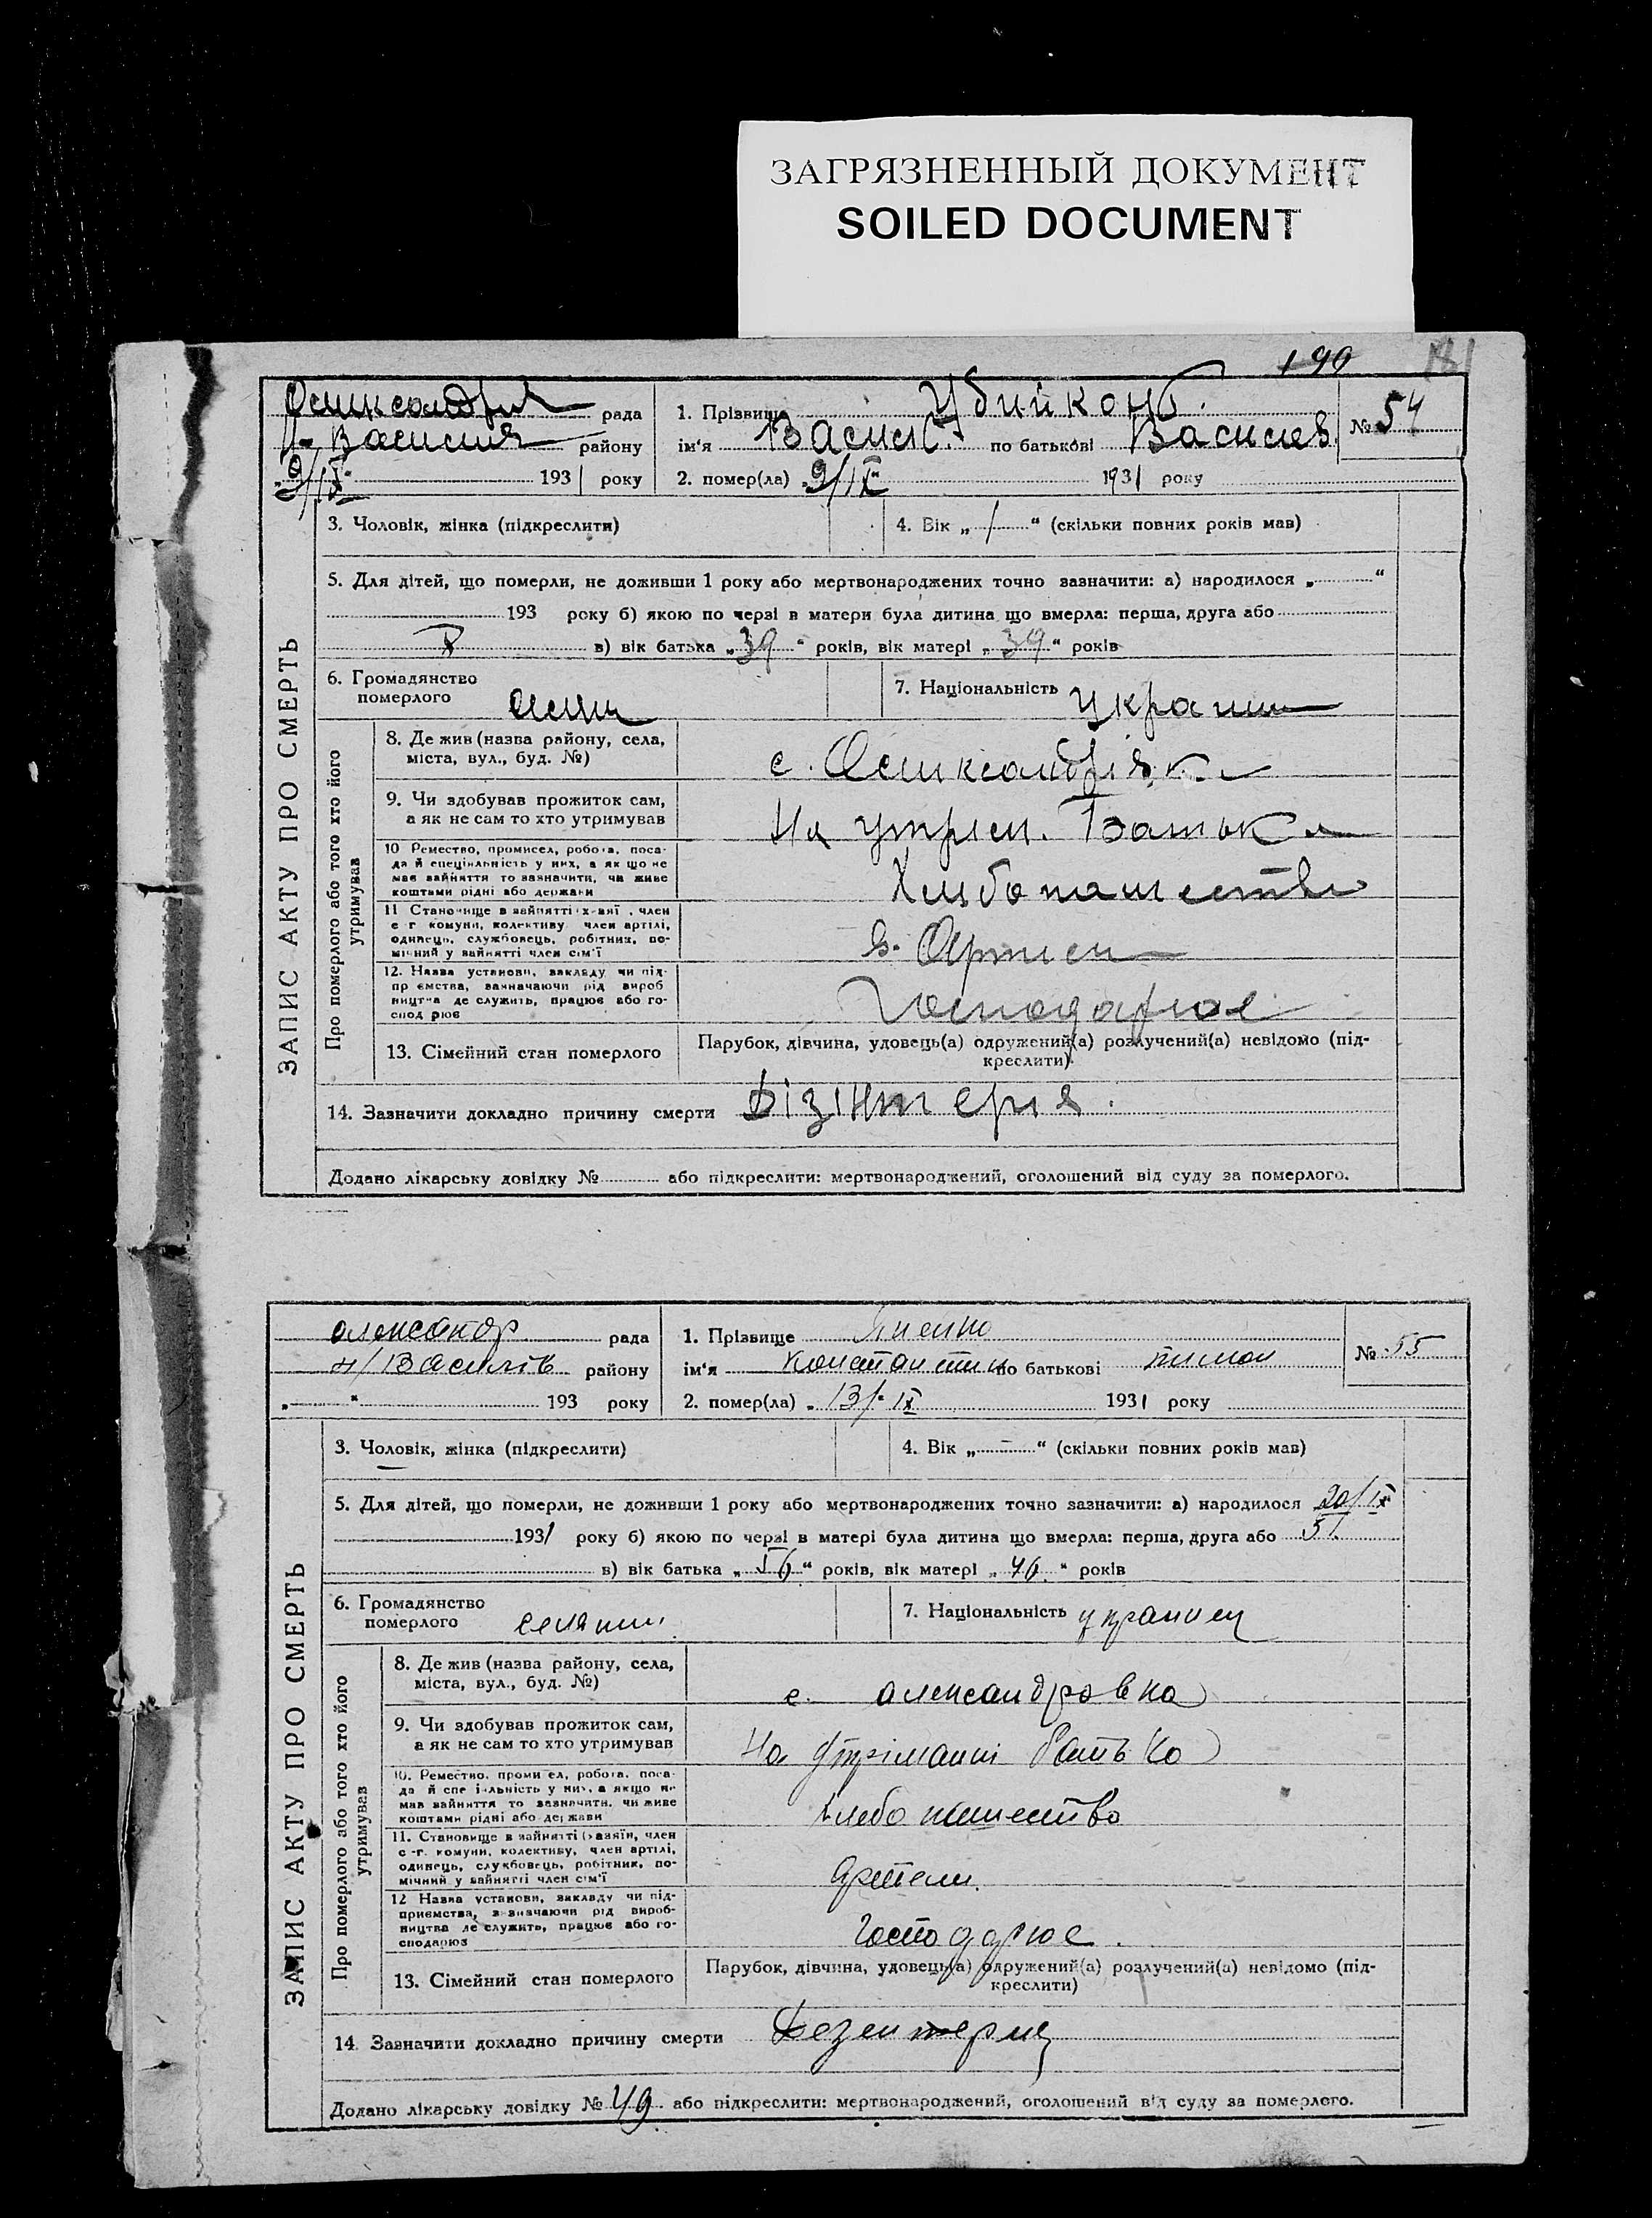 ЗАГРЯЗНЕННЫЙ ДОКУМЕНТ
SOILED DOCUMENT
190
181
рада
району
9/IX 1931 року
1. Прізвище Убийконь
ім'я Василь по батькові Василев.
№ 54
2. помер(ла) 9/IX 1931 року
ЗАПИС АКТУ ПРО СМЕРТЬ
3. Чоловік, жінка (підкреслити)
4. Вік „ 1 “ (скільки повних років мав)
5. Для дітей, що померли, не доживши 1 року або мертвонароджених точно зазначити: а) народилося „ “
193 року б) якою по черзі в матери була дитина що вмерла: перша, друга або
в) вік батька „ 39 “ років, вік матері „ 39 “ років
6. Громадянство
померлого
7. Національність Украин
Про померлого або того хто його
утримував
8. Де жив (назва району, села,
міста, вул., буд. №)
с.
9. Чи здобував прожиток сам,
а як не сам то хто утримував
На утрим. Батька
10 Ремество, промисел, робота, поса-
да й спеціяльність у них, а як що не
має зайняття то зазначити, чи живе
коштами рідні або держави
Хлибопашество
11 Становище в зайнятті х-вяї, член
с г комуни, колективу член артілі,
одинець, службовець, робітник, по-
мічний у зайнятті член сім'ї
в. Артили
12. Назва установи, закладу чи під-
пр ємства, зазначаючи рід вироб
ництва де служить, працює або го-
спод рює
Господарює
13. Сімейний стан померлого
Парубок, дівчина, удовець(а) одружений(а) розлучений(а) невідомо (під-
креслити)
14. Зазначити докладно причину смерти Дізінтерия.
Додано лікарську довідку № або підкреслити: мертвонароджений, оголошений від суду за померлого.
александр рада
н/Васил­ів району
„ “ 193 року
1. Прізвище
ім'я Константин по батькові тимоп
№ 55
2. помер(ла) 13/IX 1931 року
ЗАПИС АКТУ ПРО СМЕРТЬ
3. Чоловік, жінка (підкреслити)
4. Вік „ – “ (скільки повних років мав)
5. Для дітей, що померли, не доживши 1 року або мертвонароджених точно зазначити: а) народилося 20/IX
1931 року б) якою по черзі в матері була дитина що вмерла: перша, друга або 5
в) вік батька „ “ років, вік матері „ 40 “ років
6. Громадянство
померлого селянин
7. Національність украинец
Про померлого або того хто його
утримував
8. Де жив (назва району, села,
міста, вул., буд. №)
с. александровка
9. Чи здобував прожиток сам,
а як не сам то хто утримував
На утріманні батько
10. Ремество, проми ел, робота, поса-
да й спе іяльність у них, а якщо не
має зайняття то зазначити, чи живе
коштами рідні або держави
хлебопашество
11. Становище в зайнятті (хазяїн, член
с -г. комуни, колективу, член артілі,
одинець, службовець, робітник, по-
мічний у зайнятті член сім'ї
Артели.
12 Назва установи, закладу чи під-
приємства, зазначаючи рід вироб-
ництва де служить, працює або го-
сподарює
Господарює.
13. Сімейний стан померлого
Парубок, дівчина, удовець(а) одружений(а) розлучений(а) невідомо (під-
креслити)
14 Зазначити докладно причину смерти Дезентерия
Додано лікарську довідку № 49 або підкреслити: мертвонароджений, оголошений від суду за померлого.